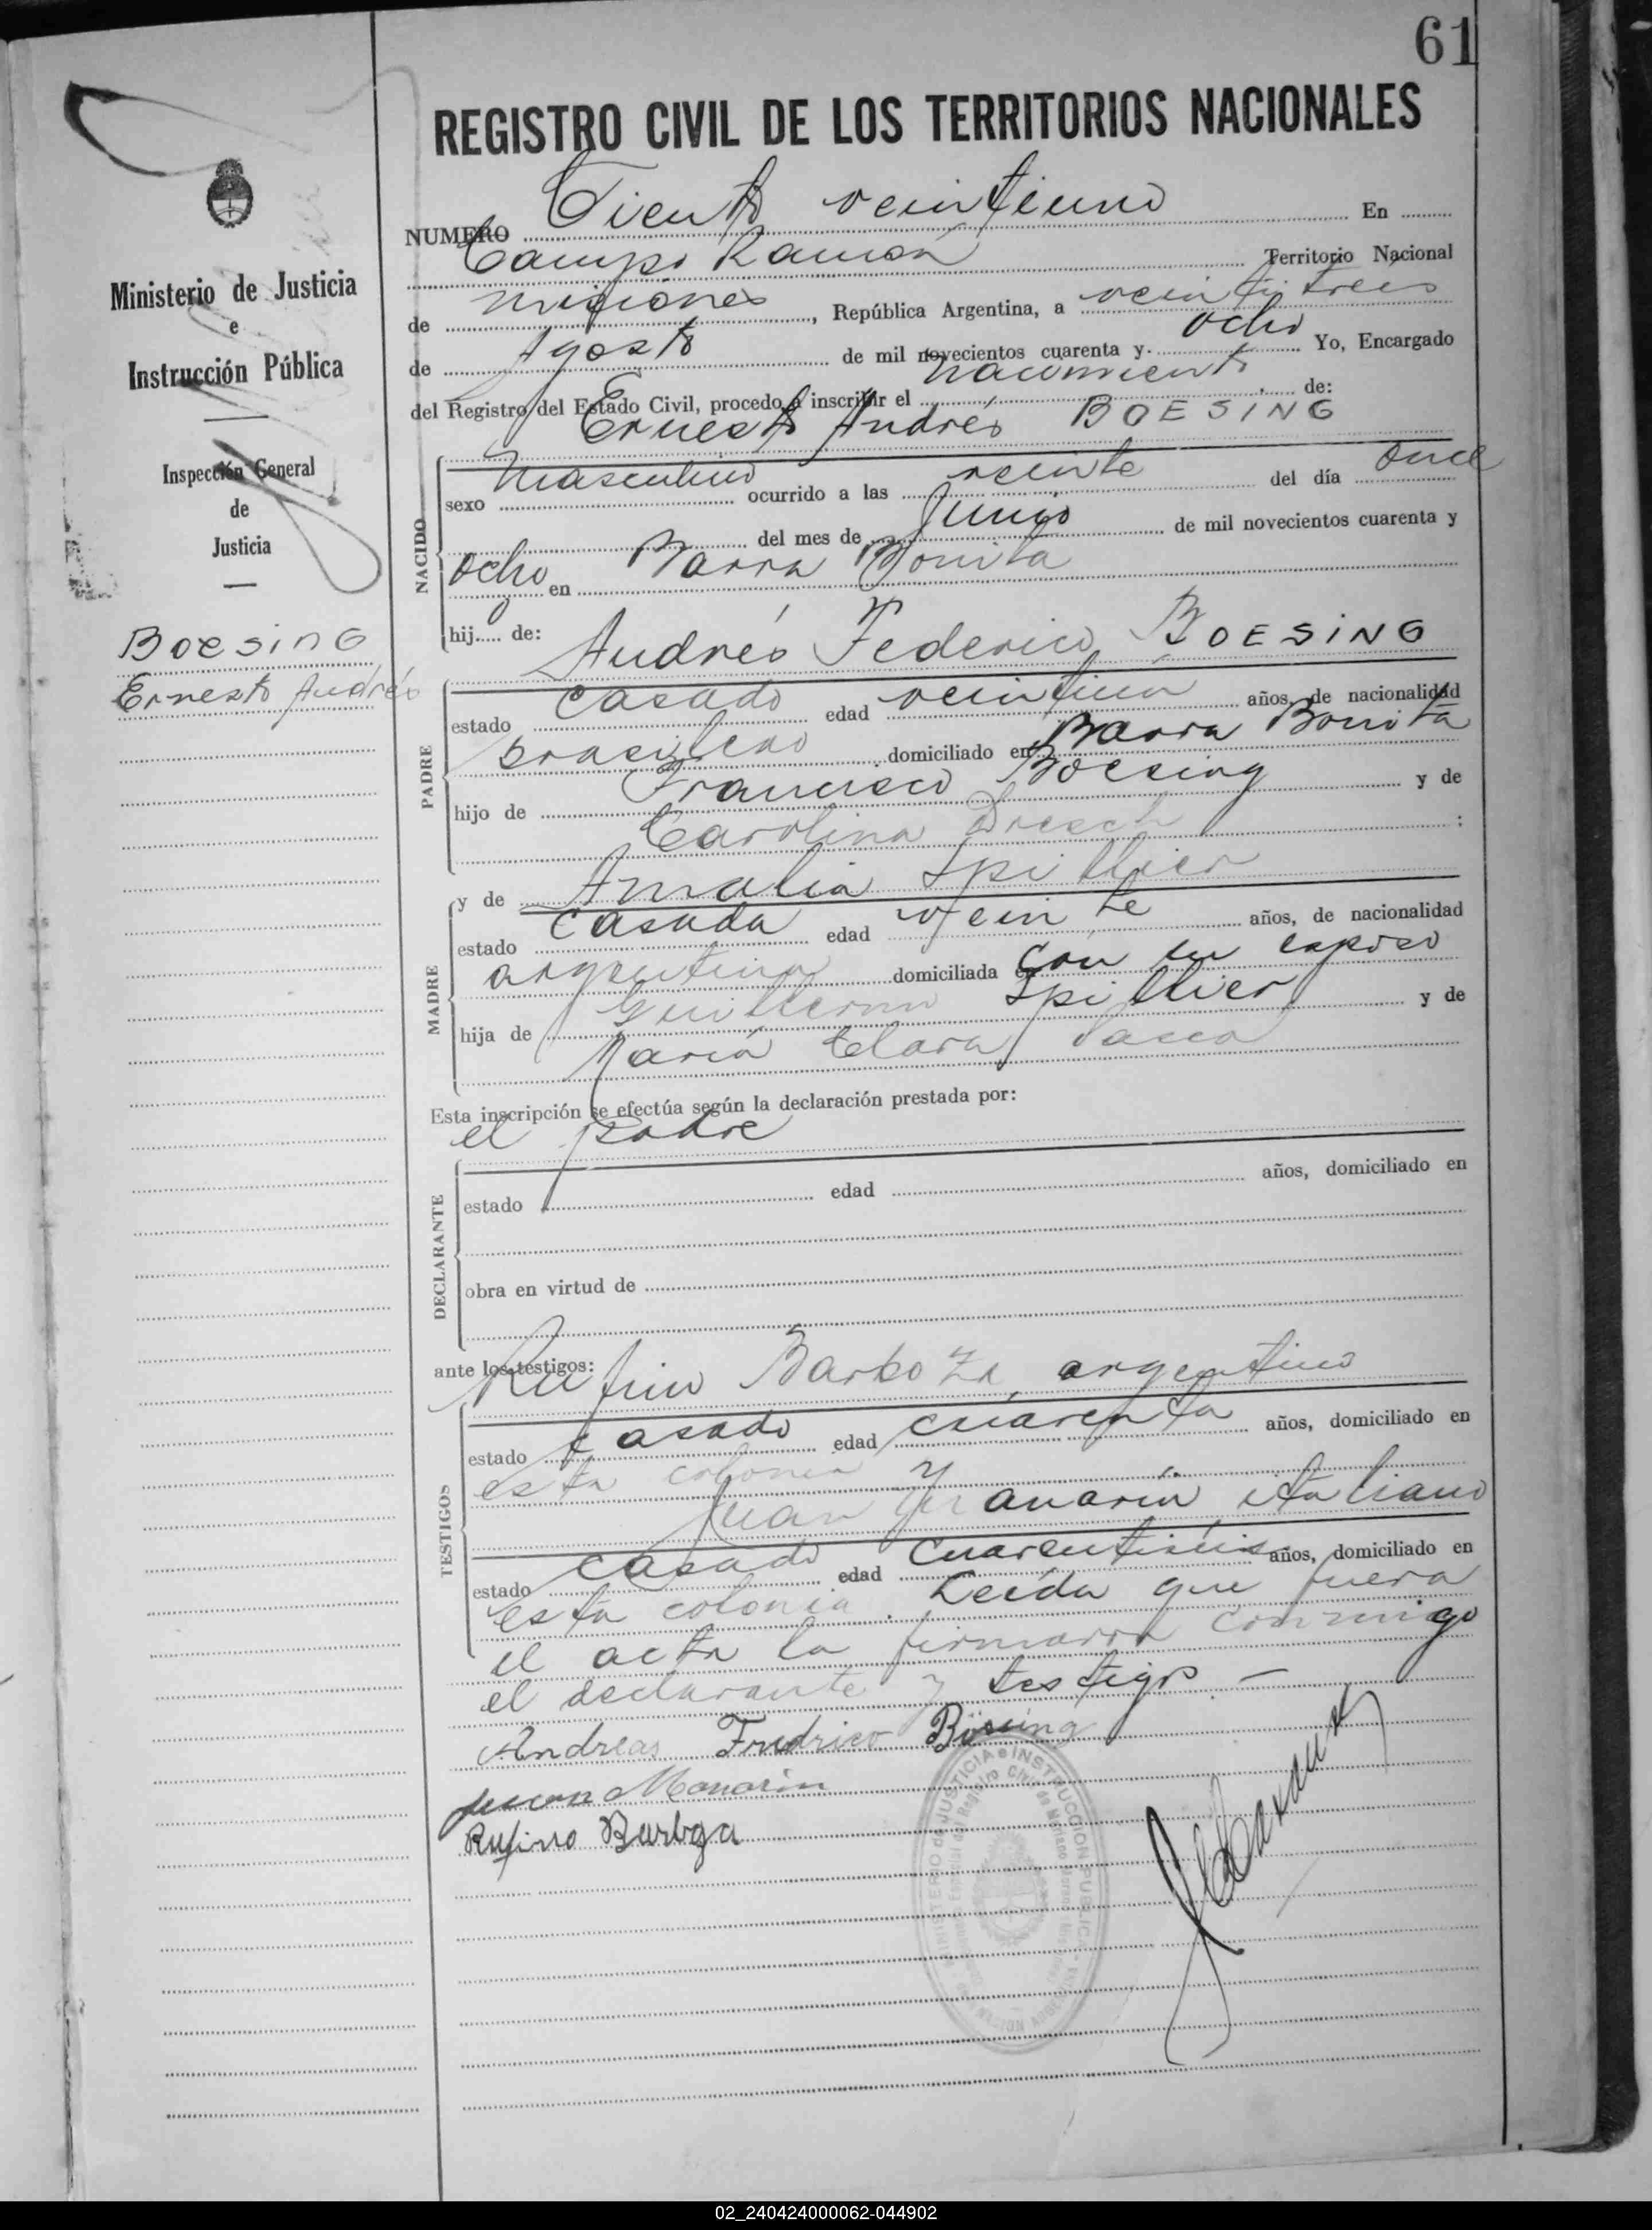 61
REGISTRO CIVIL DE LOS TERRITORIOS NACIONALES
Ministerio de Justicia
e
Instrucción Pública
Inspección General
de
Justicia
Boesing
Ernesto Andrés
NUMERO Ciento veintiuno En
Campo Ramón Territorio Nacional
de Misiones, República Argentina, a veintitres
de Agosto de mil novecientos cuarenta y ocho Yo, Encargado
del Registro del Estado Civil, procedo a inscribir el nacimiento de:
Ernesto Andrés BOESING
NACIDO
sexo Masculino ocurrido a las veinte del día once
del mes de Junio de mil novecientos cuarenta y
ocho en Barra Bonita
hij de: Andrés Federico BOESING
PADRE
estado casado edad veintiun años, de nacionalidad
brasileño domiciliado en Barra Bonita
hijo de Francisco Boesing y de
Carolina Dresch ;
y de Amalia Spillier
MADRE
estado casada edad veinte años, de nacionalidad
argentina domiciliada en con su esposo
hija de Guillermo Spillier y de
María Clara
Esta inscripción se efectúa según la declaración prestada por:
el padre
DECLARANTE
estado edad años, domiciliado en
obra en virtud de
ante los testigos:
Rufino Barboza, argentino
TESTIGOS
estado casado edad cuarenta años, domiciliado en
esta colonia y
Juan italiano
estado casado edad años, domiciliado en
esta colonia. Leída que fuera
el acta la firmaron conmigo
el declarante y testigos. —
Andreas Fredrico Bösing
Juan Manarin
Rufino Barboza
MINISTERIO de JUSTICIA e INSTRUCCION PUBLICA
02_240424000062-044902